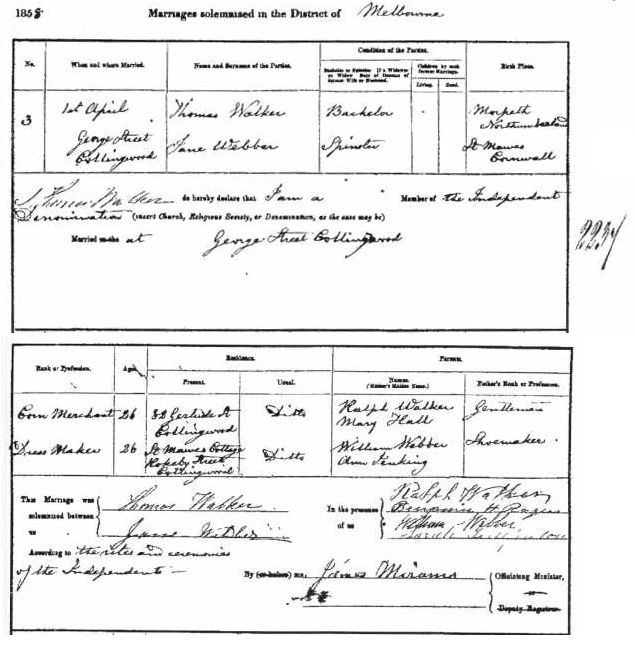 1855 Marriages solemnized in the District of Melbourne
Condition of the Parties.
No. When and where Married. Name and Surname of the Parties. Bachelor or Spinster. If a Widower or Widow Date of Decease of former Wife or Husband. Children by each former Marriage. Birth Place.
Living. Dead.
3 1st April Thomas Walker Bachelor Morpeth
Northumberland
George Street Collingwood Jane Webber Spinster St Mawes Cornwall
I, Thomas Walker do hereby declare that I am a Member of the Independent
Denomination (insert Church, Religious Society, or Denomination, as the case may be)
Married at George Street Collingwood
223
Residence. Parents.
Rank or Profession. Age. Present. Usual. Names. (Mother's Maiden Name.) Father's Rank or Profession.
Corn Merchant 26 82 St Collingwood Ditto Ralph Walker Mary Hall Gentleman
Dress Maker 26 St Mawes Cottage Street Collingwood Ditto William Webber Ann Jenking Shoemaker
This Marriage was solemnized between us Thomas Walker
Jane Webber
In the presence of us Ralph Walker
Benjamin H
William Webber
According to the rites and ceremonies
of the Independents
By (or before) me, James Mirams Officiating Minister,
Deputy Registrar